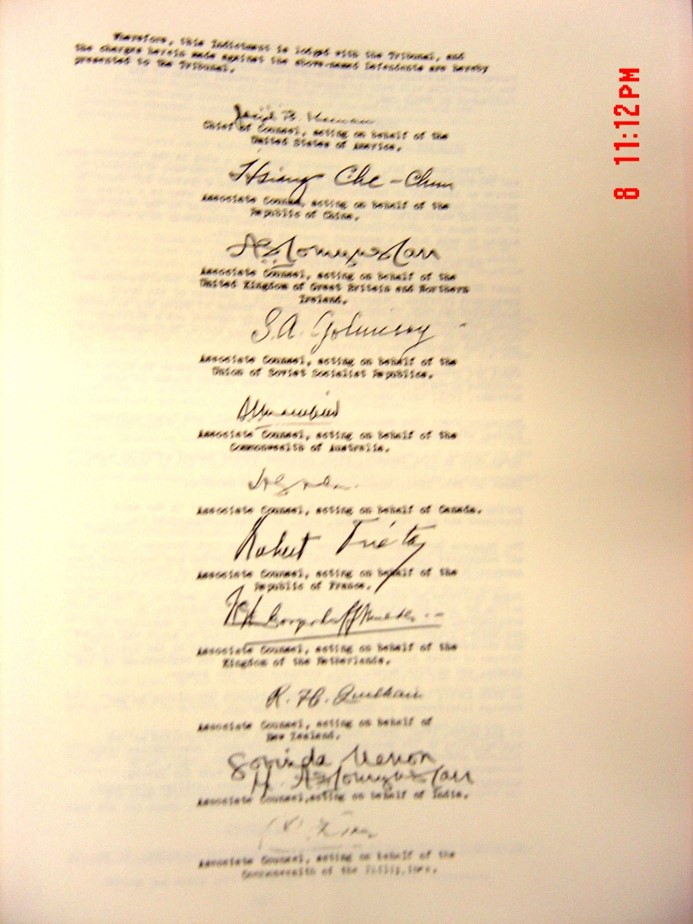 Wherefore, this Indictment is lodged with the Tribunal, and
the charges herein made against the above-named Defendants are hereby
presented to the Tribunal.
8 11:12PM
Joseph B. Keenan
Chief of Counsel, acting on behalf of the
United States of America.
Hsiang Che-Chun
Associate Counsel, acting on behalf of the
Republic of China.
Associate Counsel, acting on behalf of the
United Kingdom of Great Britain and Northern
Ireland.
S.A. Golunsky
Associate Counsel, acting on behalf of the
Union of Soviet Socialist Republics.
Associate Counsel, acting on behalf of the
Commonwealth of Australia.
Associate Counsel, acting on behalf of Canada.
Robert
Associate Counsel, acting on behalf of the
Republic of France.
Associate Counsel, acting on behalf of the
Kingdom of the Netherlands.
R. H. Quilliam
Associate Counsel, acting on behalf of
New Zealand.
Govinda Menon
Associate Counsel,acting on behalf of India.
Associate Counsel, acting on behalf of the
Commonwealth of the